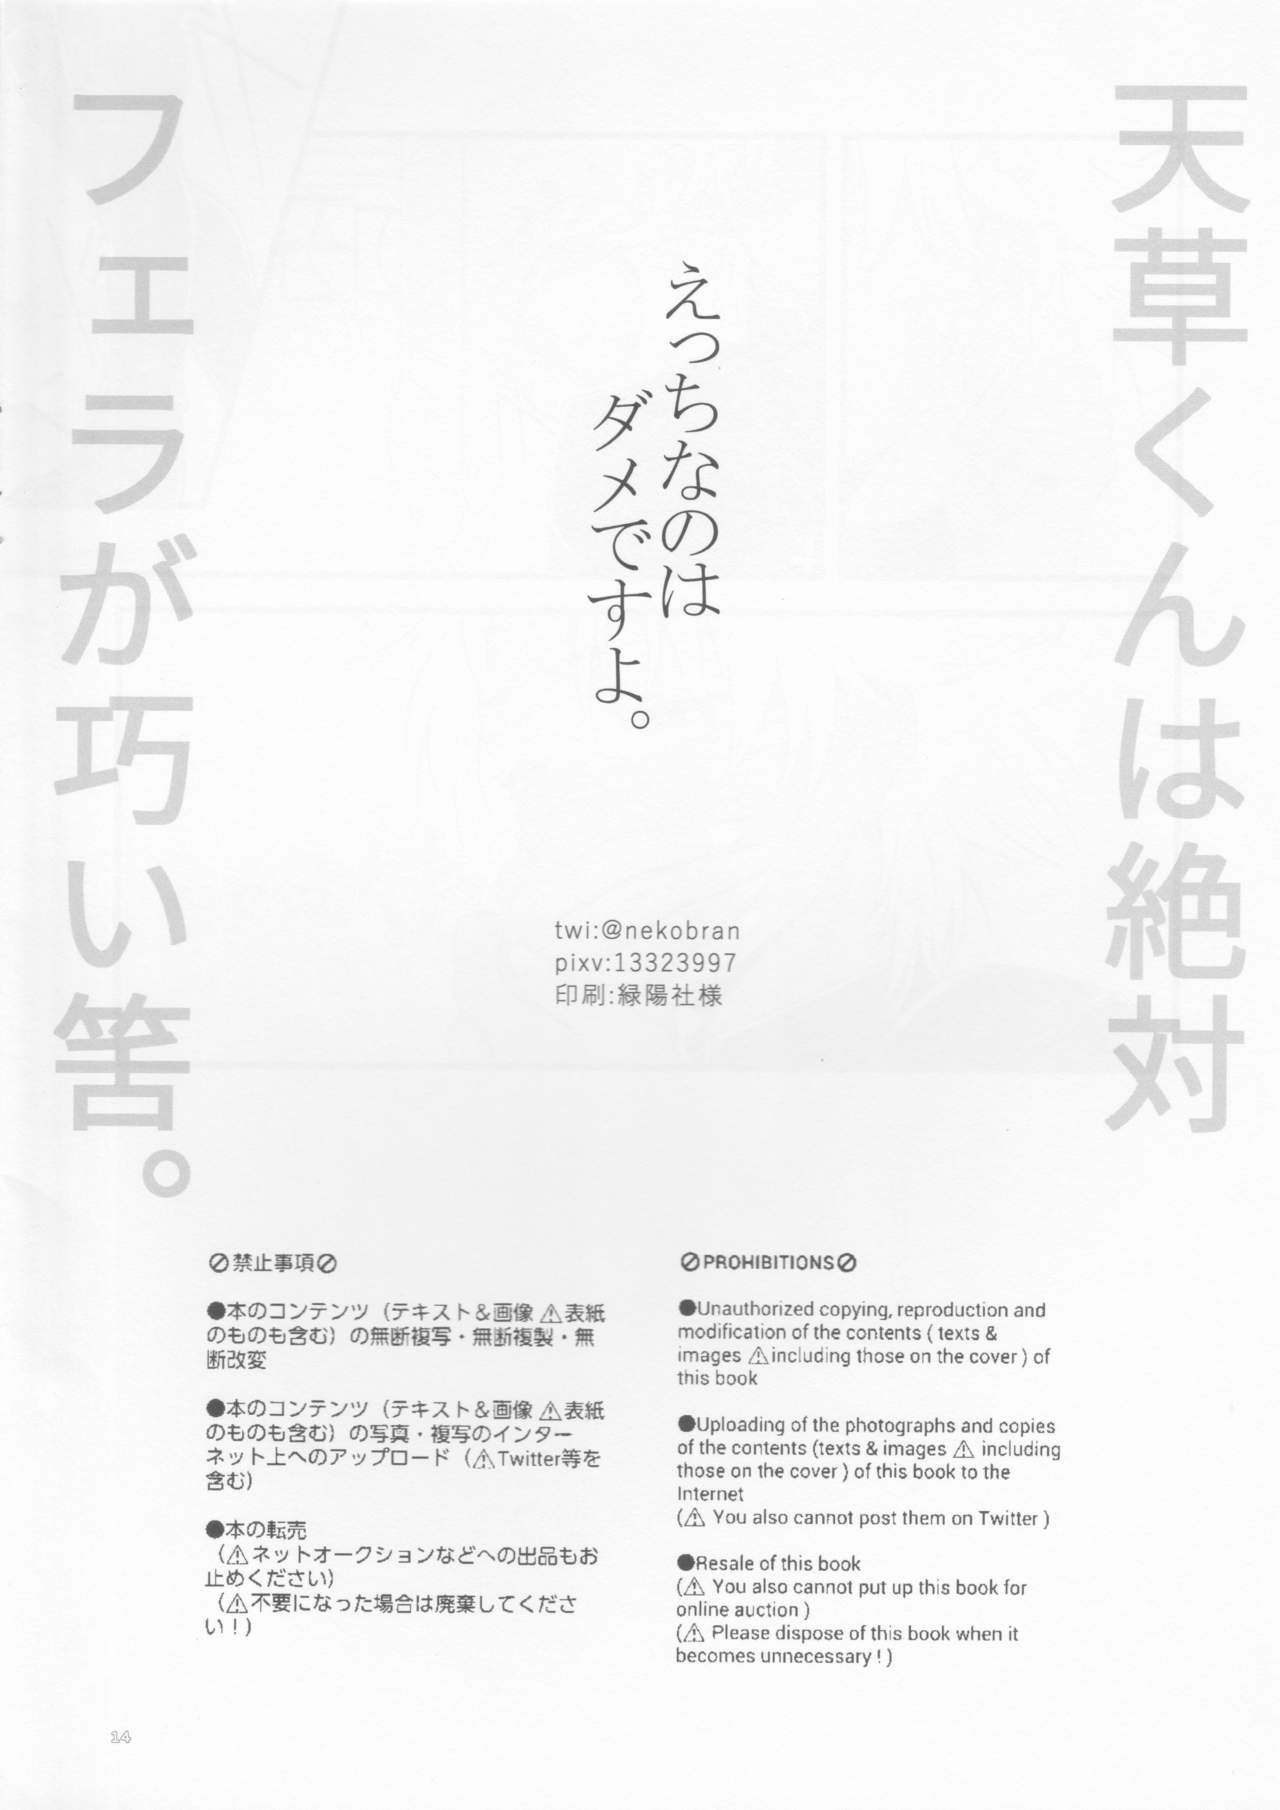 天草くんは絶対
フェラが巧い筈。
えっちなのは
ダメですよ。
twi:@nekobran
pixv:13323997
印刷:緑陽社様
🚫禁止事項🚫
●本のコンテンツ（テキスト＆画像 ⚠表紙
のものも含む）の無断複写・無断複製・無
断改変
●本のコンテンツ（テキスト＆画像 ⚠表紙
のものも含む）の写真・複写のインター
ネット上へのアップロード（⚠Twitter等を
含む）
●本の転売
（⚠ネットオークションなどへの出品もお
止めください）
（⚠不要になった場合は廃棄してくださ
い！）
🚫PROHIBITIONS🚫
●Unauthorized copying, reproduction and
modification of the contents ( texts &
images ⚠including those on the cover ) of
this book
●Uploading of the photographs and copies
of the contents (texts & images ⚠ including
those on the cover ) of this book to the
Internet
(⚠ You also cannot post them on Twitter )
●Resale of this book
(⚠ You also cannot put up this book for
online auction )
(⚠ Please dispose of this book when it
becomes unnecessary ! )
14